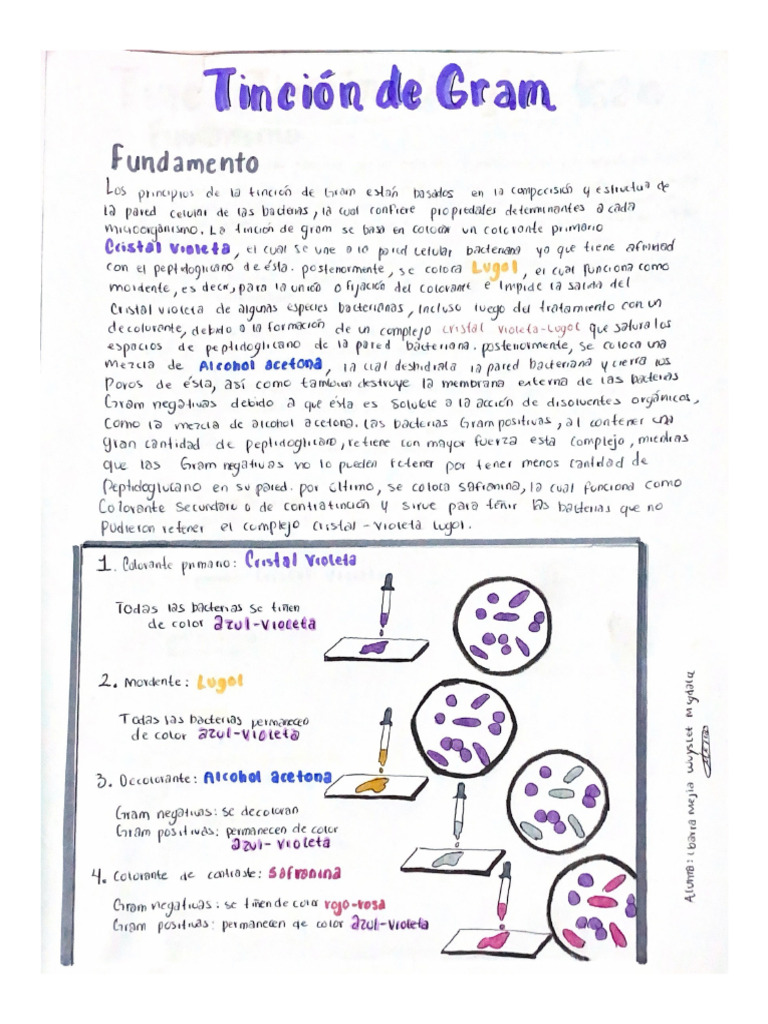 Tinción de Gram
Fundamento
Los principios de la tinción de Gram están basados en la composición y estructura de
la pared celular de las bacterias, la cual confiere propiedades determinantes a cada
microorganismo. La tinción de gram se basa en colocar un colorante primario
Cristal Violeta, el cual se une a la pared celular bacteriana ya que tiene afinidad
con el peptidoglicano de ésta. posteriormente, se colora Lugol, el cual funciona como
mordente, es decir, para la unión o fijación del colorante e impide la salida del
Cristal violeta de algunas especies bacterianas, incluso luego del tratamiento con un
decolorante, debido a la formación de un complejo cristal violeta-Lugol que satura los
espacios de peptidoglicano de la pared bacteriana. posteriormente, se coloca una
mezcla de Alcohol acetona, la cual deshidrata la pared bacteriana y cierra los
Poros de ésta, así como tambien destruye la membrana externa de las bacterias
Gram negativas debido a que ésta es soluble a la acción de disolventes orgánicos,
como la mezcla de alcohol acetona. Las bacterias Gram positivas, al contener una
gran cantidad de peptidoglicano, retiene con mayor fuerza esta complejo, mientras
que las Gram negativas no lo pueden retener por tener menos cantidad de
Peptidoglucano en su pared. por último, se coloca safranina, la cual funciona como
Colorante Secundario o de contratinción y sirve para teñir las bacterias que no
pudieron retener el complejo Cristal-Violeta Lugol.
1. Colorante primario: Cristal Violeta
Todas las bacterias se tiñen
de color azul-violeta
2. Mordente: Lugol
Todas las bacterias permanecen
de color azul-violeta
3. Decolorante: Alcohol acetona
Gram negativas: se decoloran
Gram positivas: permanecen de color
azul-violeta
4. Colorante de contraste: Safranina
Gram negativas: se tiñen de color rojo-rosa
Gram positivas: permanecen de color azul-violeta
Alumna: Ibarra Mejia Wuyslet Mydalu